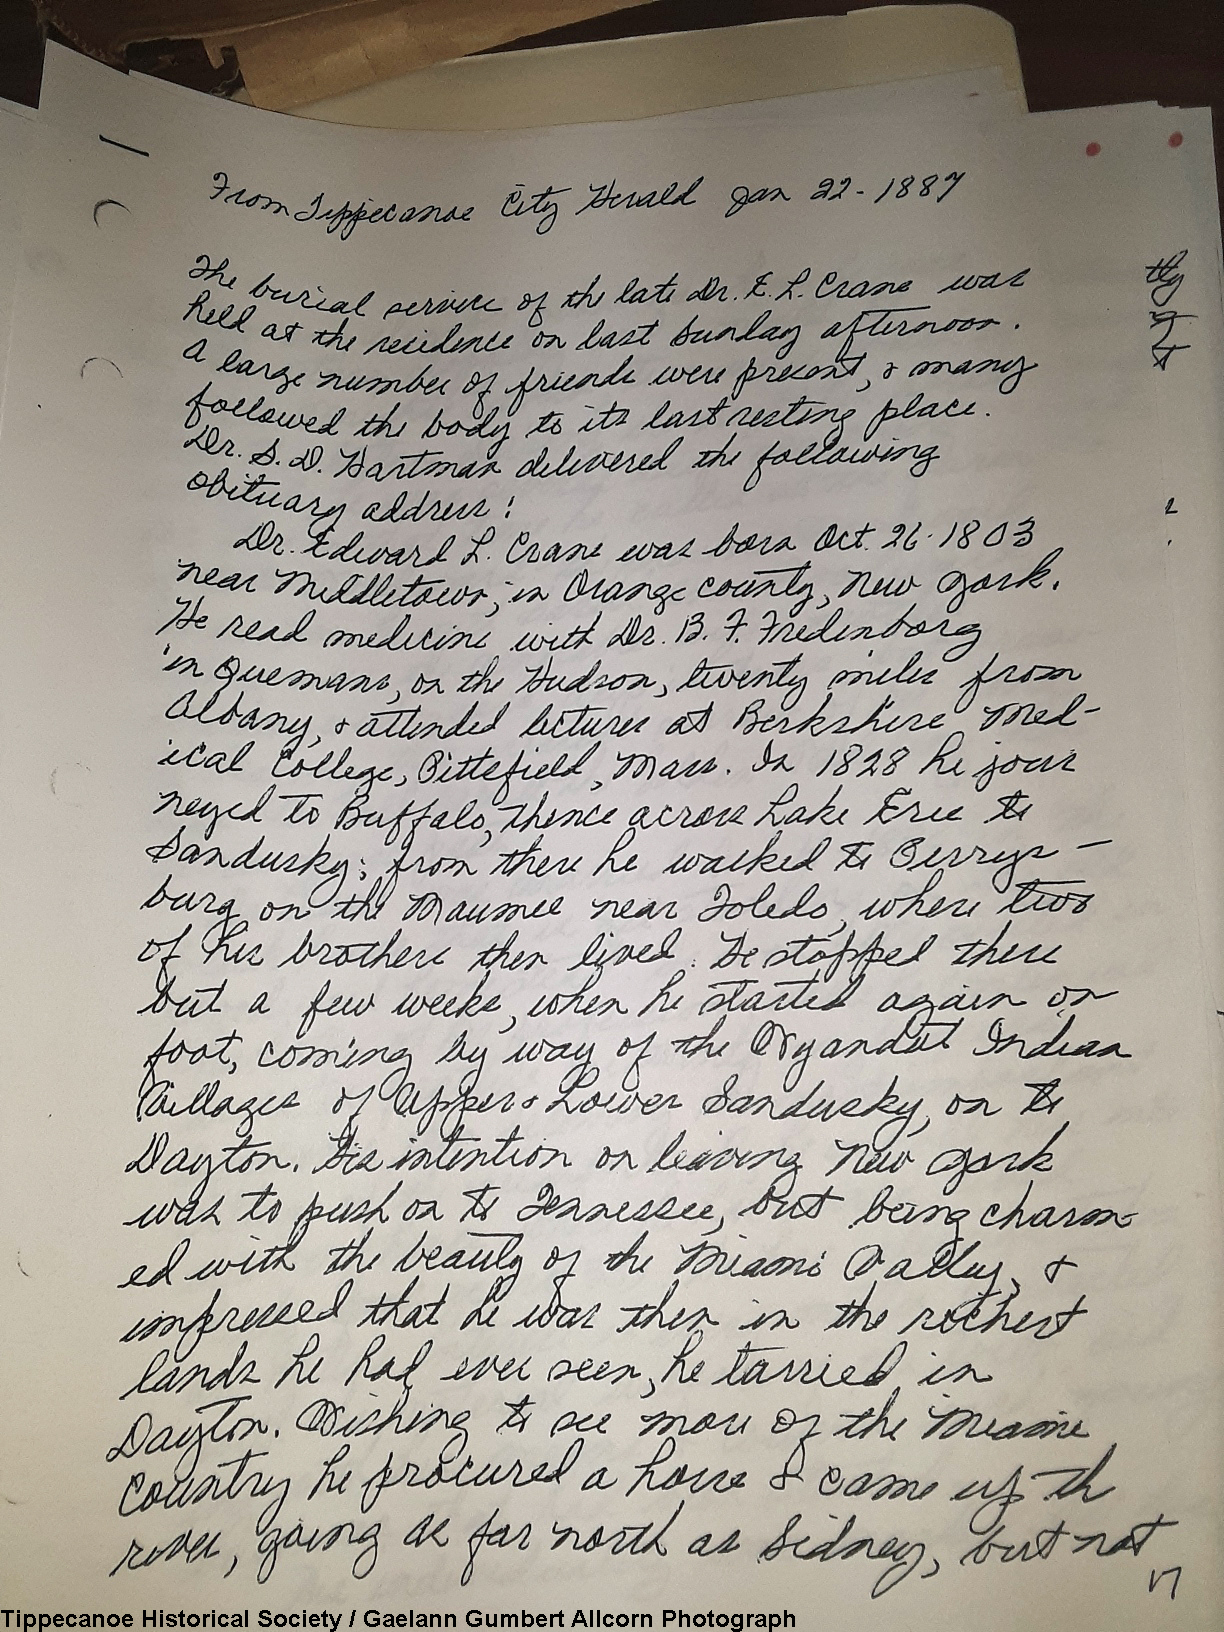 From Tippecanoe City Herald Jan 22-1887
The burial service of the late Dr. E. L. Crane was
held at the residence on last Sunday afternoon.
A large number of friends were present, & many
followed the body to its last resting place.
Dr. S. D. Hartman delivered the following
obituary address:
Dr. Edward L. Crane was born Oct. 26-1803
near Middletown, in Orange county, New York.
He read medicine with Dr. B. F. Fredenborg
in Quemans, on the Hudson, twenty miles from
Albany, & attended lectures at Berkshire Med-
ical College, Pittsfield, Mass. In 1828 he jour
neyed to Buffalo, thence across Lake Erie to
Sandusky; from there he walked to Perrys-
burg on the Maumee near Toledo, where two
of his brothers then lived. He stopped there
but a few weeks, when he started again on
foot, coming by way of the Wyandot Indian
Villages of Upper & Lower Sandusky, on to
Dayton. His intention on leaving New York
was to push on to Tennessee, but being charm-
ed with the beauty of the Miami Valley, &
impressed that he was then in the richest
lands he had ever seen, he tarried in
Dayton. Wishing to see more of the Miami
Country he procured a horse & came up th
river, going as far north as Sidney, but not
17
Tippecanoe Historical Society / Gaelann Gumbert Allcorn Photograph